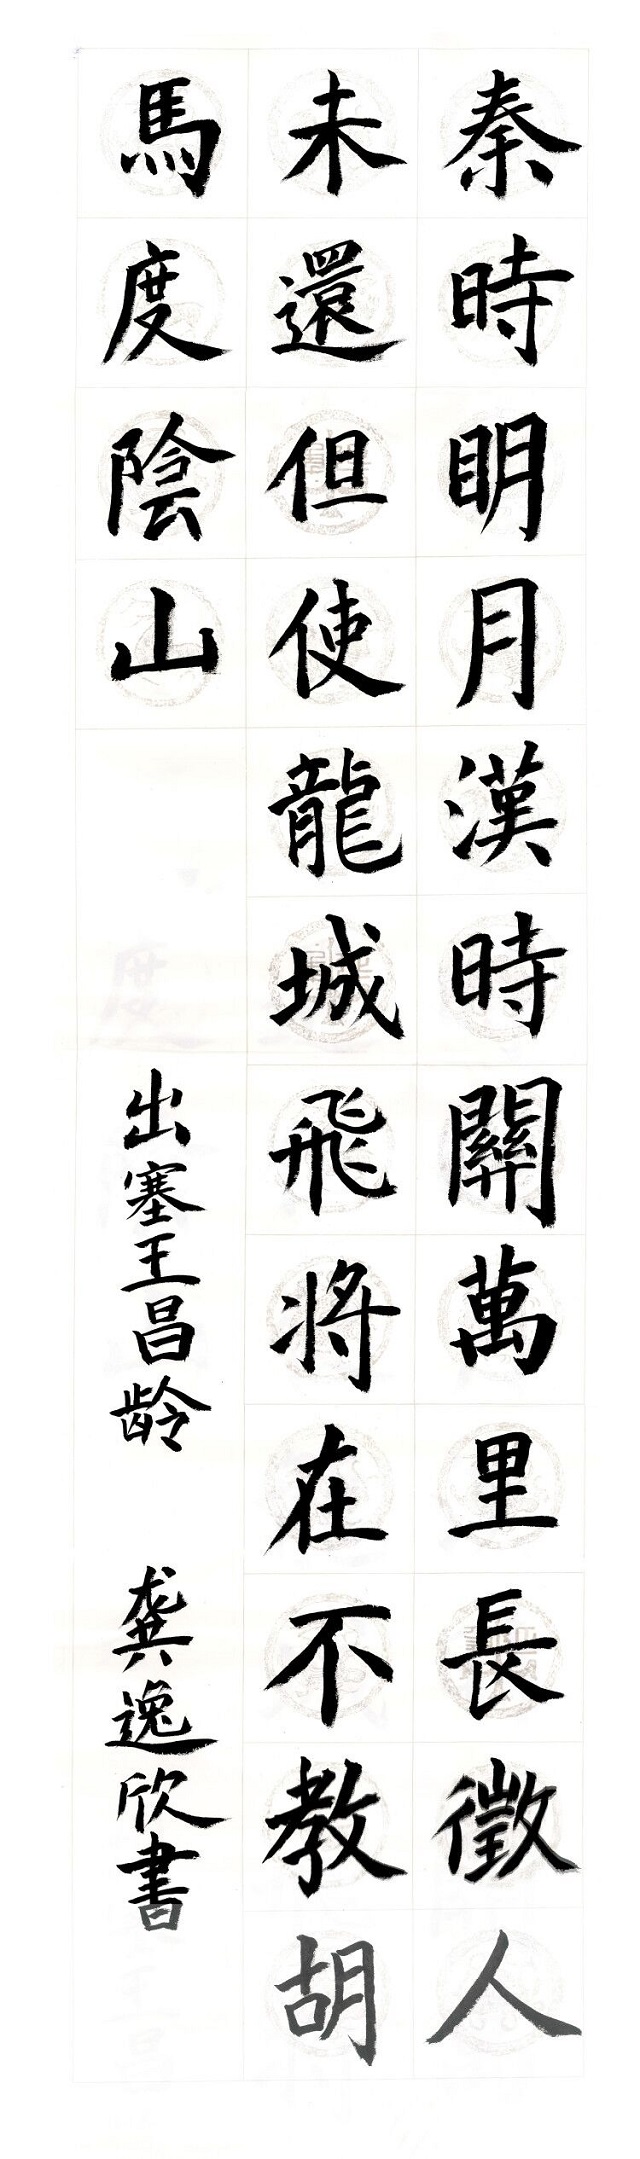 秦時明月漢時關萬里長徵人
未還但使龍城飛将在不教胡
馬度陰山
出塞王昌龄
龚逸欣書